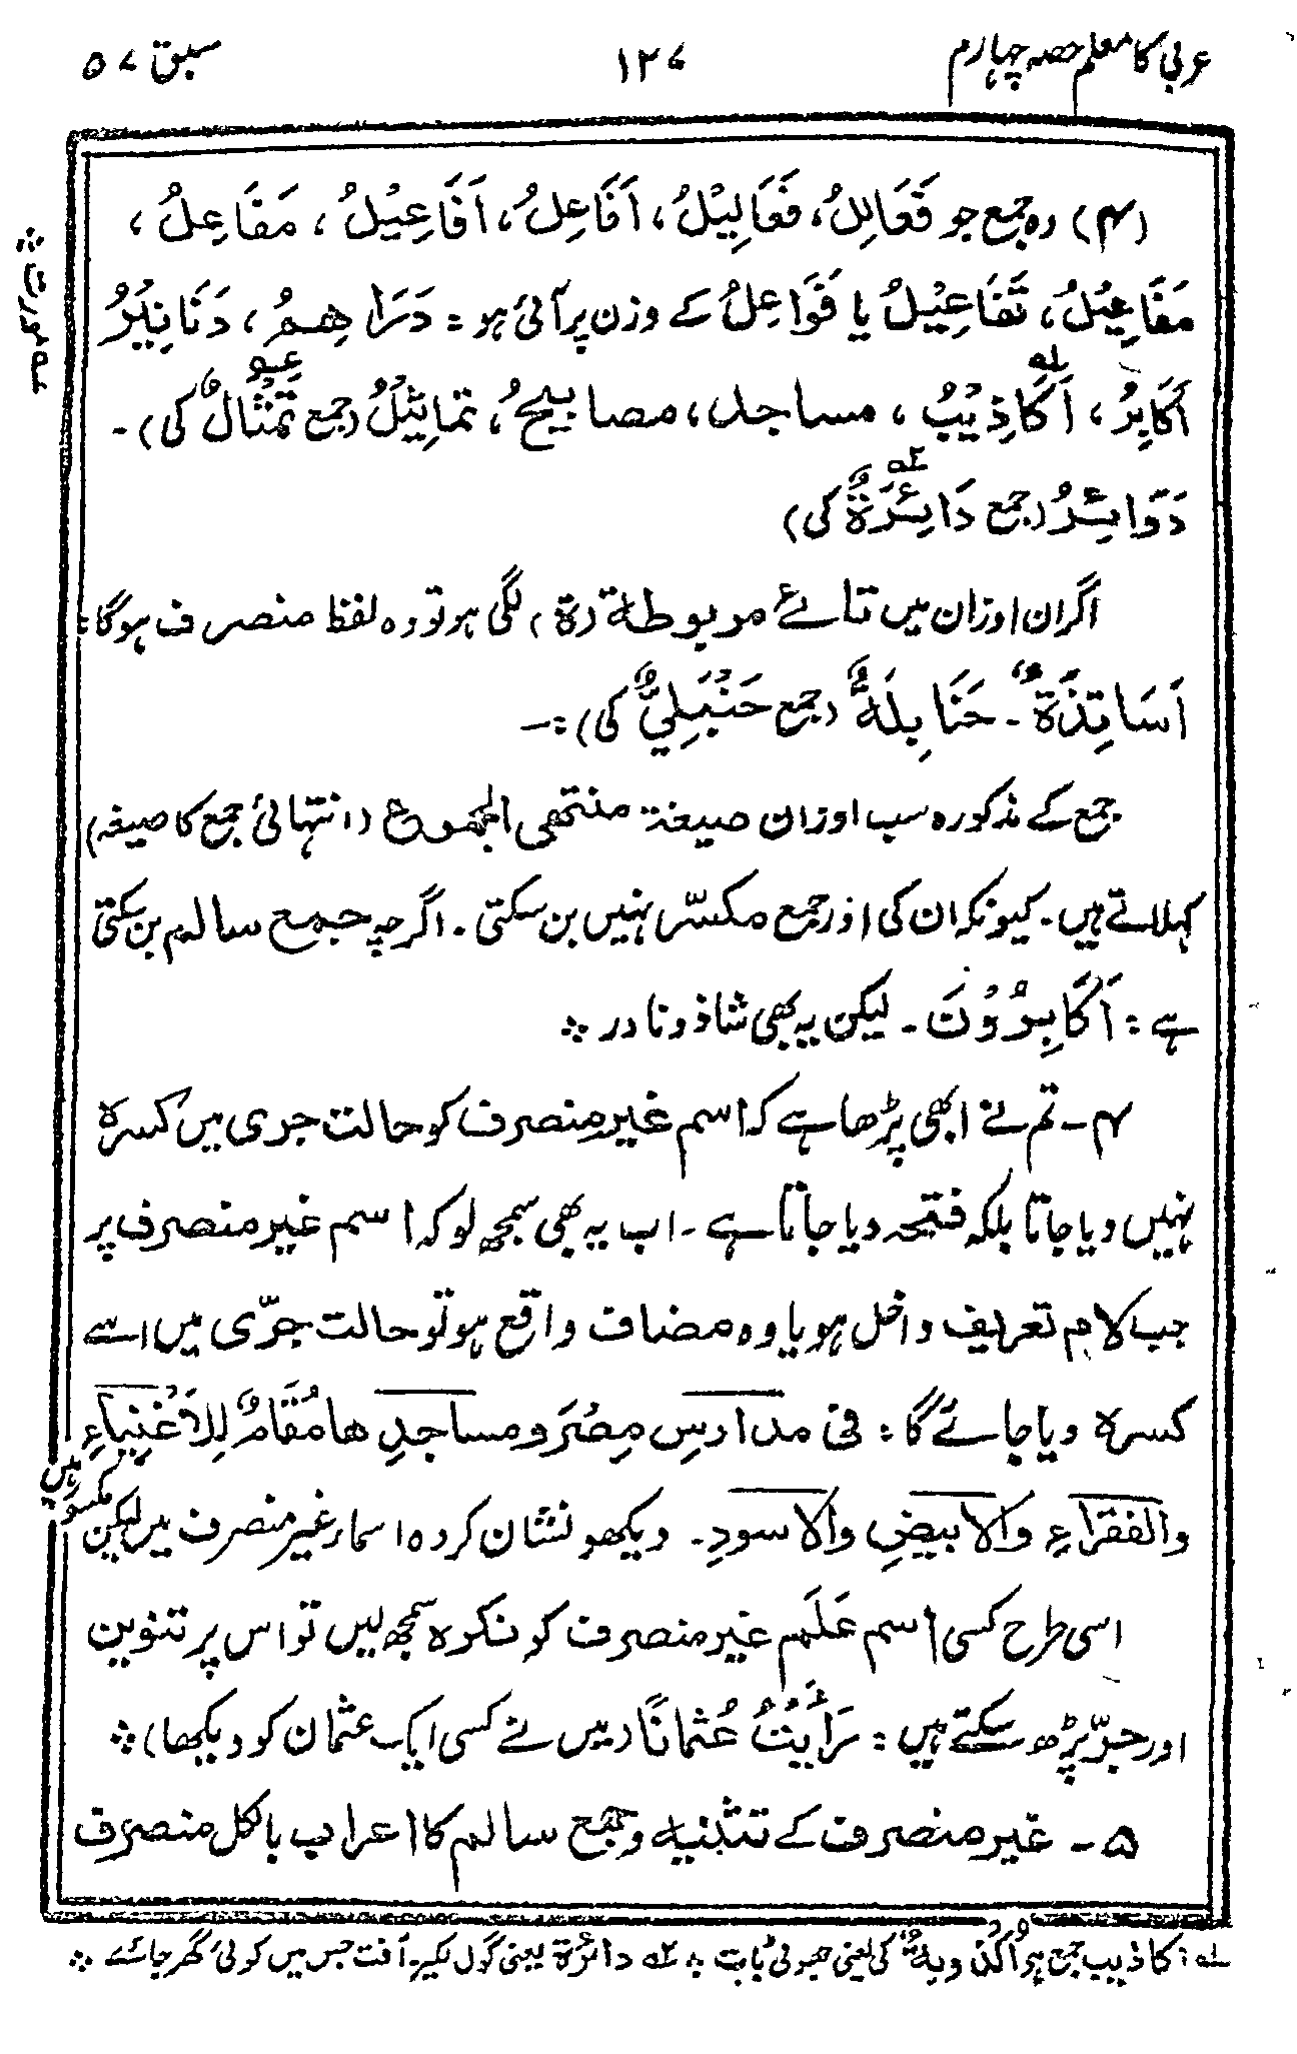 عربی کا معلم حصہ چہارم ۱۲۷ سبق ۵۷
(۴) وہ جمع جو فَعَالِلُ، فَعَالِيْلُ، اَفَاعِلُ، اَفَاعِيْلُ، مَفَاعِلُ،
مَفَاعِيْلُ، تَفَاعِيْلُ یا فَوَاعِلُ کے وزن پر آئی ہو: دَرَاهِمُ، دَنَانِيْرُ
اَكَابِرُ، اَكَاذِيْبُ ؎۱، مساجد، مصابيحُ، تماثِيْلُ (جمع تِمْثَالٌ ؎عہ کی)۔
دَوَائِرُ (جمع دَائِرَةٌ ؎۲ کی)
اگر ان اوزان میں تائے مربوطہ (ة) لگی ہو تو وہ لفظ منصرف ہوگا:
اَسَاتِذَةٌ ۔ حَنَابِلَةٌ (جمع حَنْبَلِيٌّ کی):۔
جمع کے مذکورہ سب اوزان صيغة منتهى الجموع (انتہائی جمع کا صیغہ)
کہلاتے ہیں۔ کیونکہ ان کی اور جمع مکسّر نہیں بن سکتی۔ اگرچہ جمع سالم بن سکتی
ہے: اَكَابِرُوْنَ۔ لیکن یہ بھی شاذ و نادر ؞
۴ ۔ تم نے ابھی پڑھا ہے کہ اسم غیر منصرف کو حالت جری میں کسرہ
نہیں دیا جاتا بلکہ فتحہ دیا جاتا ہے۔ اب یہ بھی سمجھ لو کہ اسم غیر منصرف پر
جب لام تعریف داخل ہو یا وہ مضاف واقع ہو تو حالت جرّی میں اسے
کسرہ دیا جائے گا: فی مدارسِ مِصْرَ ومساجدِها مُقَامٌ لِلاَغْنِياءِ
والفقراءِ والابيضِ والاسودِ۔ دیکھو نشان کردہ اسماء غیر منصرف ہیں لیکن مکسور ہیں
اسی طرح کسی اسم عَلَم غیر منصرف کو نکرہ سمجھ لیں تو اس پر تنوین
اور جرّ پڑھ سکتے ہیں: رَاَيْتُ عُثمانًا (میں نے کسی ایک عثمان کو دیکھا) ؞
۵ ۔ غیر منصرف کے تثنیہ و جمع سالم کا اعراب بالکل منصرف
؎۱ اکاذیب جمع ہے اُكْذُوبةٌ کی یعنی جھوٹی بات ؞ ؎۲ دائرة یعنی گول لکیر۔ آفت جس میں کوئی گھر جائے ؞
؎عہ مورت ؞